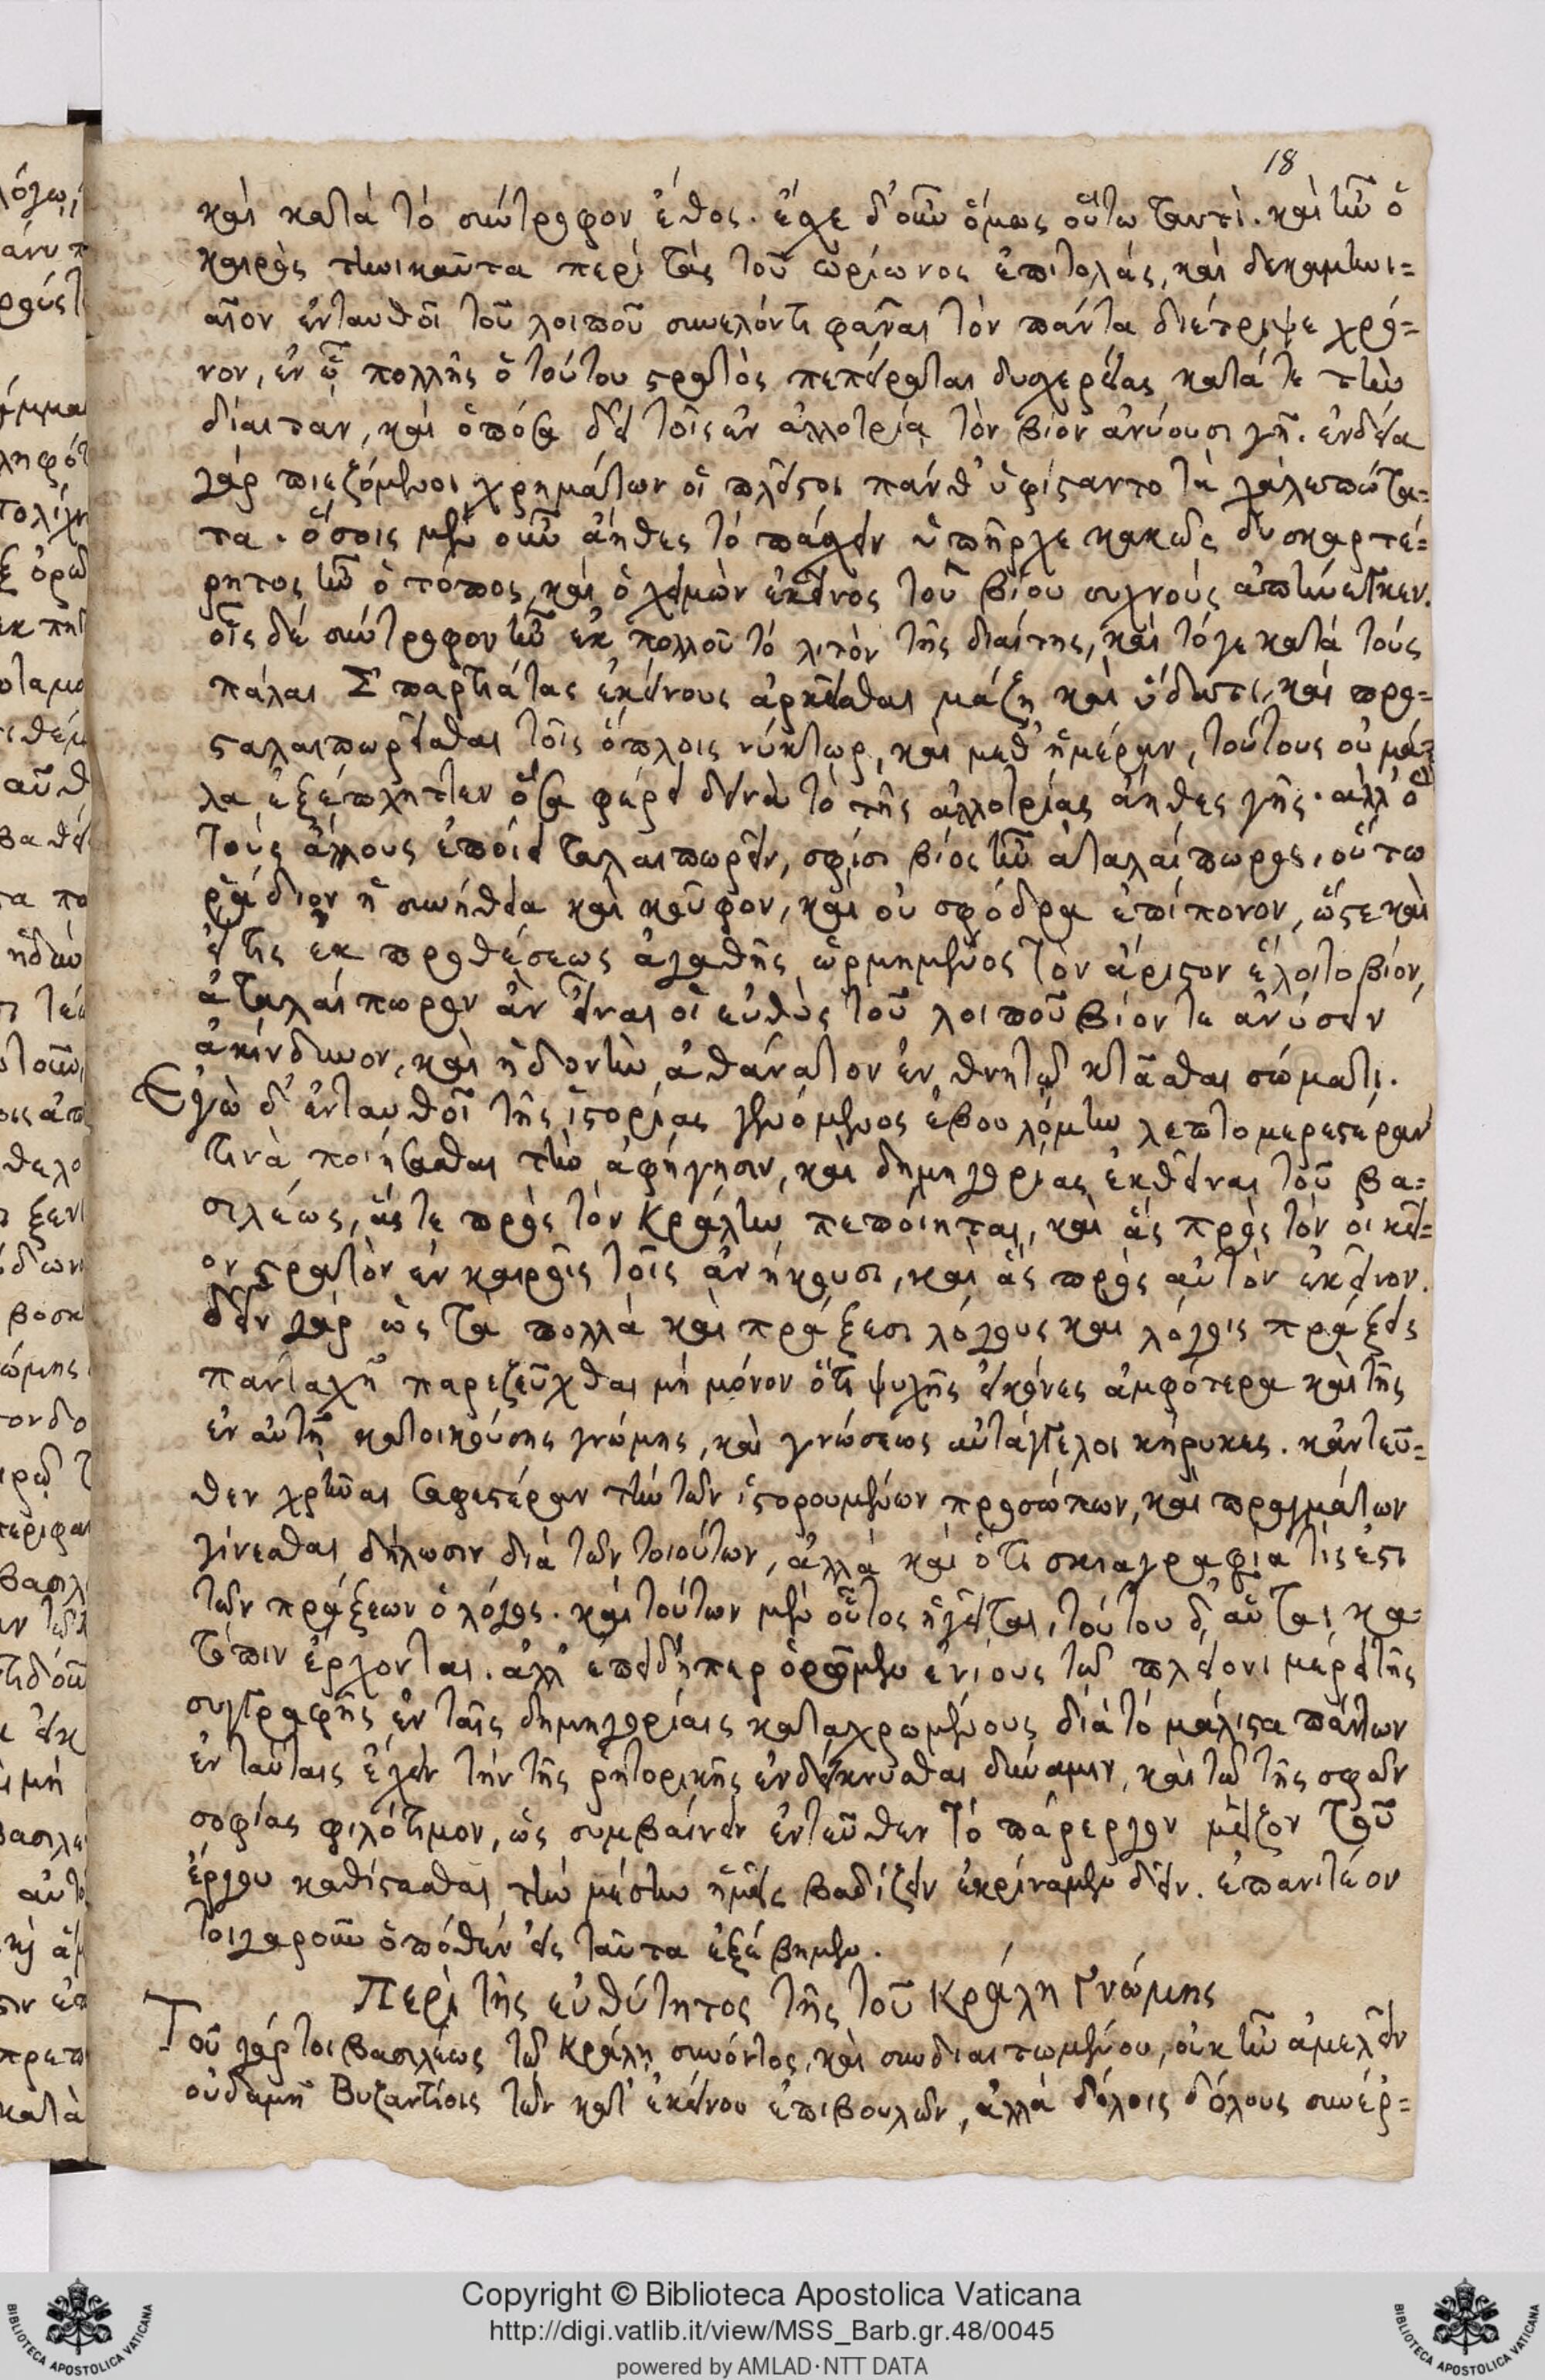 18
καὶ κατὰ τὸ σύντροφον ἔθος. ἔσχε δ' οὖν ὅμως οὕτω ταυτί. καὶ ἦν ὁ
καιρὸς τηνικαῦτα περὶ τὰς τοῦ ὠρίωνος ἐπιτολάς, καὶ δεκαμηνι=
αῖον ἐνταυθοῖ τοῦ λοιποῦ συνελόντι φᾶναι τὸν πάντα διέτριψε χρό=
νον, ἐν ᾧ πολλῆς ὁ τούτου στρατὸς πεπείραται δυσχερείας κατά τε τὴν
δίαιταν, καὶ ὁπόσα δεῖ τοῖς ἐν ἀλλοτρίᾳ τὸν βίον ἀνύουσι γῇ. ἐνδείᾳ
γὰρ πιεζόμενοι χρημάτων οἱ πλεῖστοι πάνθ' ὑφίσταντο τὰ χαλεπώτα=
τα. ὅσοις μὲν οὖν ἄηθες τὸ πάσχειν ὑπῆρχε κακῶς δυσκαρτέ=
ρητος ἦν ὁ τόπος, καὶ ὁ χειμὼν ἐκεῖνος τοῦ βίου συχνοὺς ἀπήνεγκεν.
οἷς δὲ σύντροφον ἦν ἐκ πολλοῦ τὸ λιτὸν τῆς διαίτης, καὶ τόγε κατὰ τοὺς
πάλαι Σπαρτιάτας ἐκείνους ἀρκεῖσθαι μάζῃ καὶ ὕδατι, καὶ προ=
σταλαιπωρεῖσθαι τοῖς ὅπλοις νύκτωρ, καὶ μεθ' ἡμέραν, τούτους οὐ μά=
λα ἐξέπληττεν ὅσα φέρει δεινὰ τὸ τῆς ἀλλοτρίας ἄηθες γῆς. ἀλλ' ὃ
τοὺς ἄλλους ἐποίει ταλαιπωρεῖν, σφίσι βίος ἦν ἀταλαίπωρος. οὕτω
ῥᾴδιον ἡ συνήθεια καὶ κοῦφον, καὶ οὐ σφόδρα ἐπίπονον, ὥστε καὶ
εἴ τις ἐκ προθέσεως ἀγαθῆς ὡρμημένος τὸν ἄριστον ἕλοιτο βίον,
ἀταλαίπωρον ἂν εἶναι οἱ εὐθὺς τοῦ λοιποῦ βίον τε ἀνύσειν
ἀκίνδυνον, καὶ ἡδονὴν ἀθάνατον ἐν θνητῷ κτᾶσθαι σώματι.
Ἐγὼ δ' ἐνταυθοῖ τῆς ἱστορίας γενόμενος ἐβουλόμην λεπτομερεστέραν
τινὰ ποιήσασθαι τὴν ἀφήγησιν, καὶ δημηγορίας ἐκθεῖναι τοῦ βα=
σιλέως, ἅς τε πρὸς τὸν Κράλην πεποίηται, καὶ ἃς πρὸς τὸν οἰκεῖ=
ον στρατὸν ἐν καιροῖς τοῖς ἀνήκουσι, καὶ ἃς πρὸς αὐτὸν ἐκεῖνον.
δεῖν γὰρ ὡς τὰ πολλὰ καὶ πράξεσι λόγους καὶ λόγοις πράξεις
πανταχῇ παρεζεῦχθαι μὴ μόνον ὅτι ψυχῆς εἰκόνες ἀμφότερα καὶ τῆς
ἐν αὐτῇ κατοικούσης γνώμης, καὶ γνώσεως αὐτάγγελοι κήρυκες. κἀντεῦ=
θεν χρεῶναι σαφεστέραν τὴν τῶν ἱστορουμένων προσώπων, καὶ πραγμάτων
γίνεσθαι δήλωσιν διὰ τῶν τοιούτων, ἀλλὰ καὶ ὅτι σκιαγραφία τίς ἐστι
τῶν πράξεων ὁ λόγος. καὶ τούτων μὲν οὗτος ἡγεῖται, τούτου δ' αὗται κα=
τόπιν ἔρχονται. ἀλλ' ἐπειδήπερ ὁρῶμεν ἐνίους τῷ πλείονι μέρει τῆς
συγγραφῆς ἐν ταῖς δημηγορίαις καταχρωμένους διὰ τὸ μάλιστα πάντων
ἐν ταύταις ἔχειν τὴν τῆς ῥητορικῆς ἐνδείκνυσθαι δύναμιν, καὶ τῷ τῆς σφῶν
σοφίας φιλότιμον, ὡς συμβαίνειν ἐντεῦθεν τὸ πάρεργον μεῖζον τοῦ
ἔργου καθίστασθαι, τὴν μέσην ἡμεῖς βαδίζειν ἐκρίναμεν δεῖν. ἐπανιτέον
τοιγαροῦν ὁπόθεν εἰς ταῦτα ἐξέβημεν.
Περὶ τῆς εὐθύτητος τῆς τοῦ Κράλη Γνώμης
Τοῦ γάρ τοι βασιλέως τῷ Κράλῃ συνόντος, καὶ συνδιαιτωμένου, οὐκ ἦν ἀμελεῖν
οὐδαμῇ Βυζαντίοις τῶν κατ' ἐκείνου ἐπιβουλῶν, ἀλλὰ δόλοις δόλους συνέρ=
Copyright © Biblioteca Apostolica Vaticana
http://digi.vatlib.it/view/MSS_Barb.gr.48/0045
powered by AMLAD·NTT DATA
BIBLIOTECA APOSTOLICA VATICANA
BIBLIOTECA APOSTOLICA VATICANA